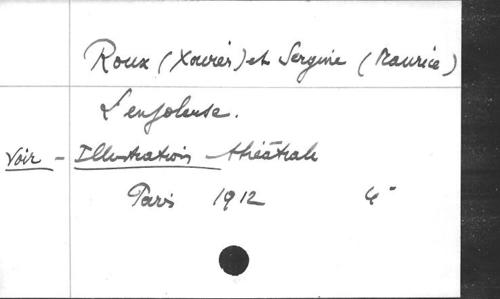 Roux (Xavier) et Sergine (Maurice)
L'enjoleuse.
Voir - Illustration théâtrale
Paris 1912 4°